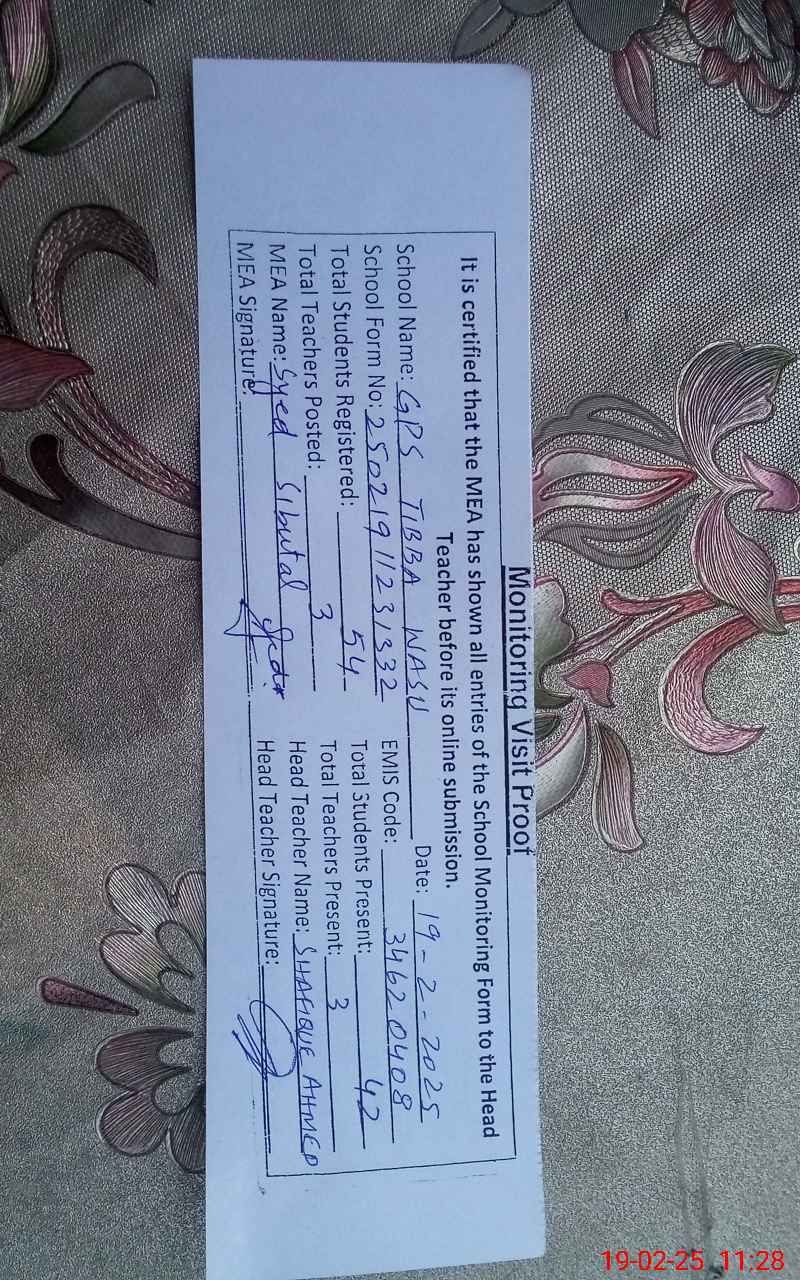 Monitoring Visit Proof
It is certified that the MEA has shown all entries of the School Monitoring Form to the Head
Teacher before its online submission.
Date: 19-2-2025
School Name: GPS TIBBA WASU
School Form No: 25021911231332 EMIS Code: 34620408
Total Students Registered: 54 Total Students Present: 42
Total Teachers Posted: 3 Total Teachers Present: 3
MEA Name: Syed Sibutal Head Teacher Name: SHAFIQUE AHMED
MEA Signature: Head Teacher Signature:
19-02-25 11:28